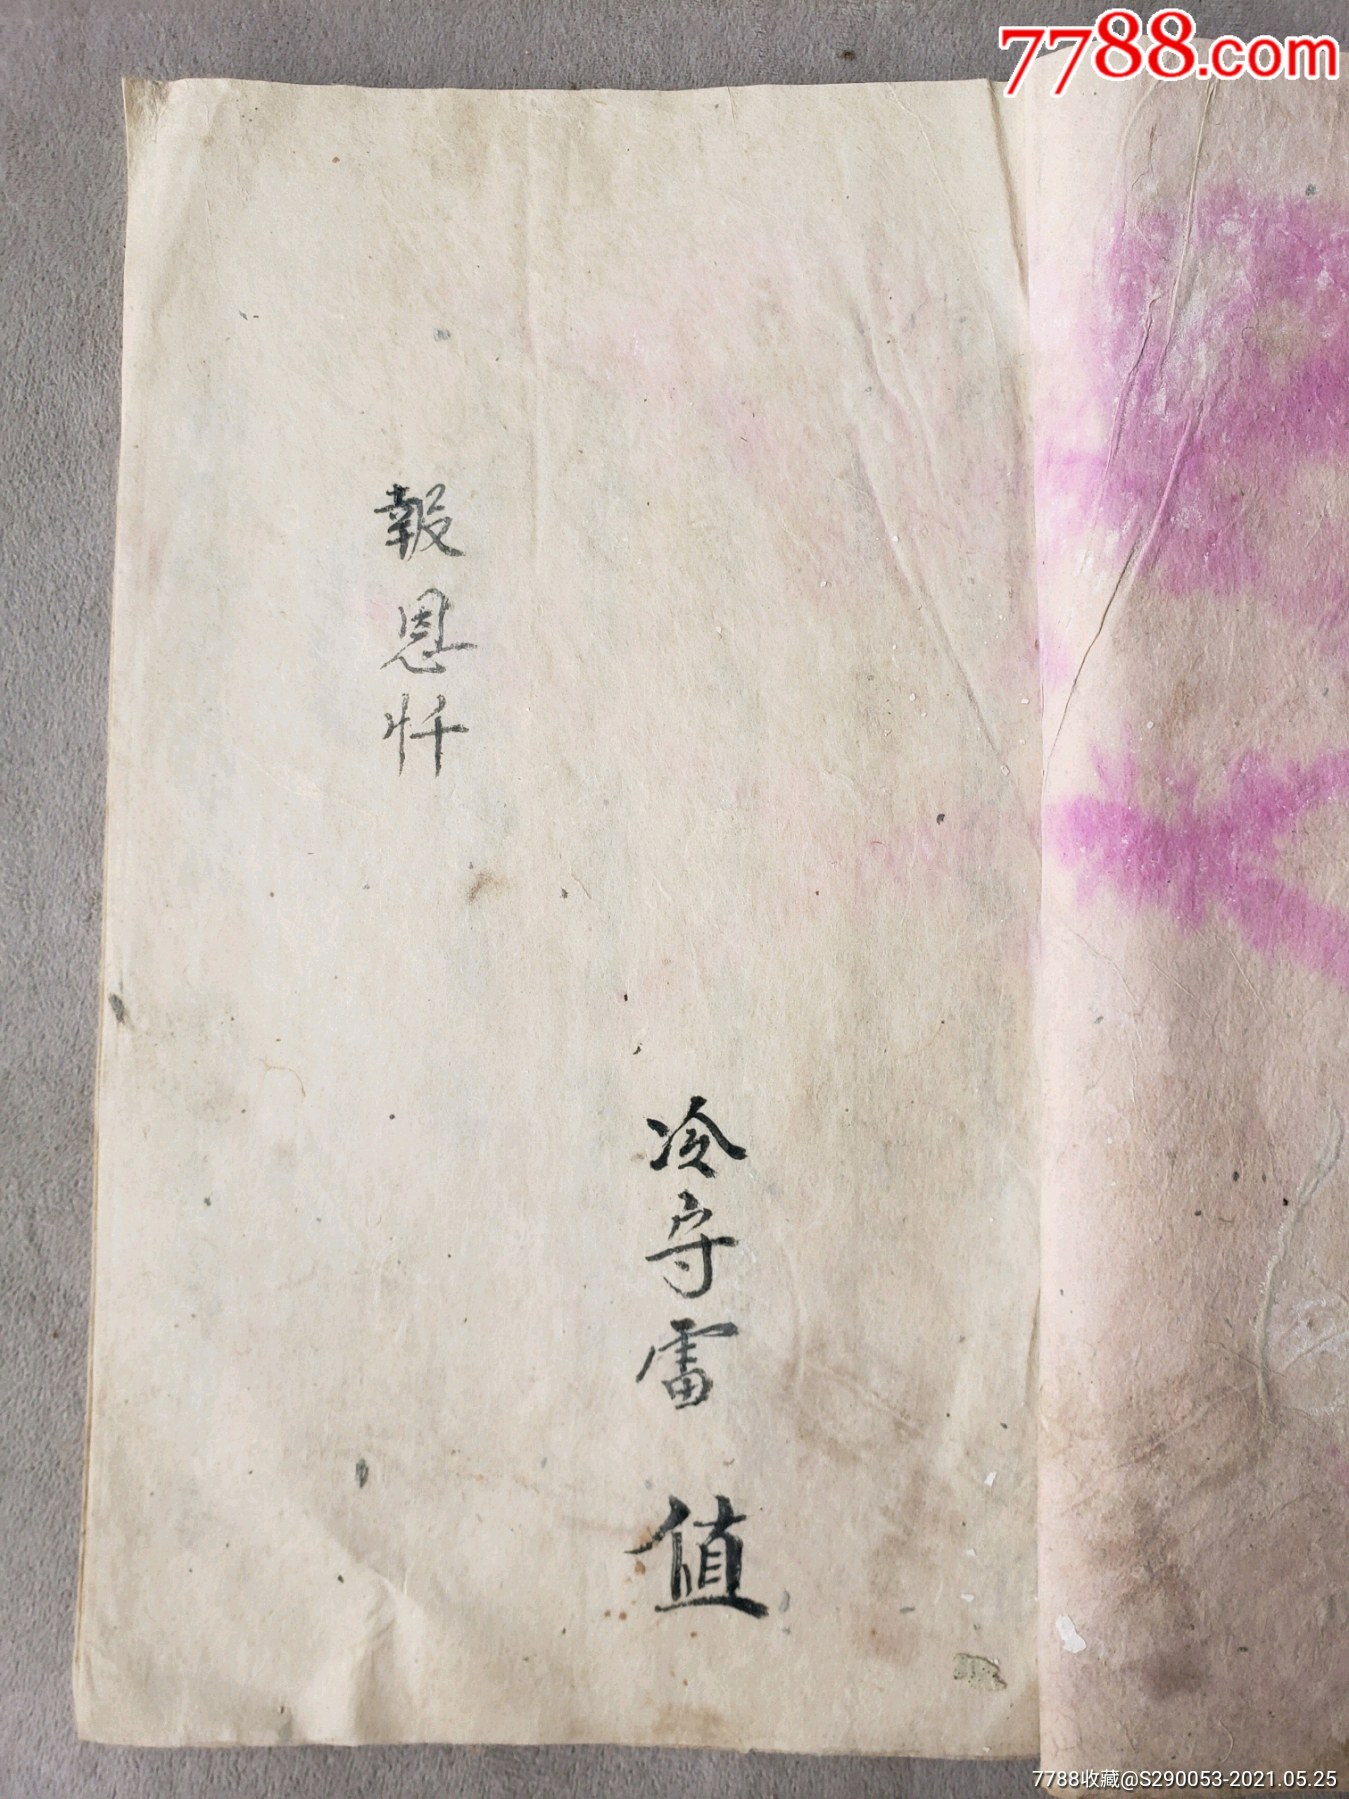 7788.com
冷守雷 值
報恩忏
7788收藏@S290053-2021.05.25